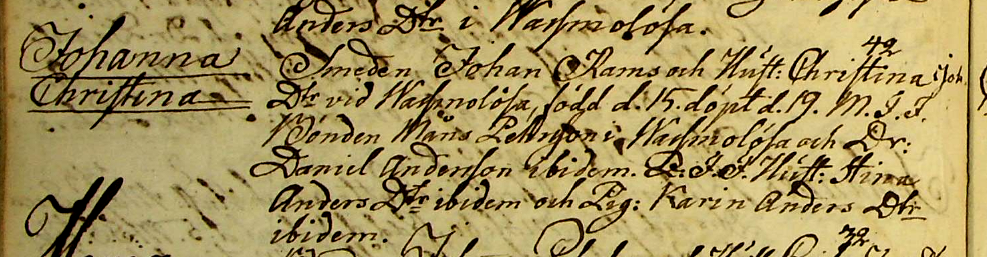 Anders Dtr. i Wassmolösa.
42
Johanna Smeden Johan Rams och Hust: Christina Joh.
Christina Dtr vid Wassmolösa, född d. 15. döpt d. 19. M. I. F.
Bonden Måns Pehrsson i Wassmolösa och Dr:
Daniel Andersson ibidem. Q. I. F. Hust: Stina
Anders Dtr ibidem och Pig: Karin Anders Dtr
ibidem.
32